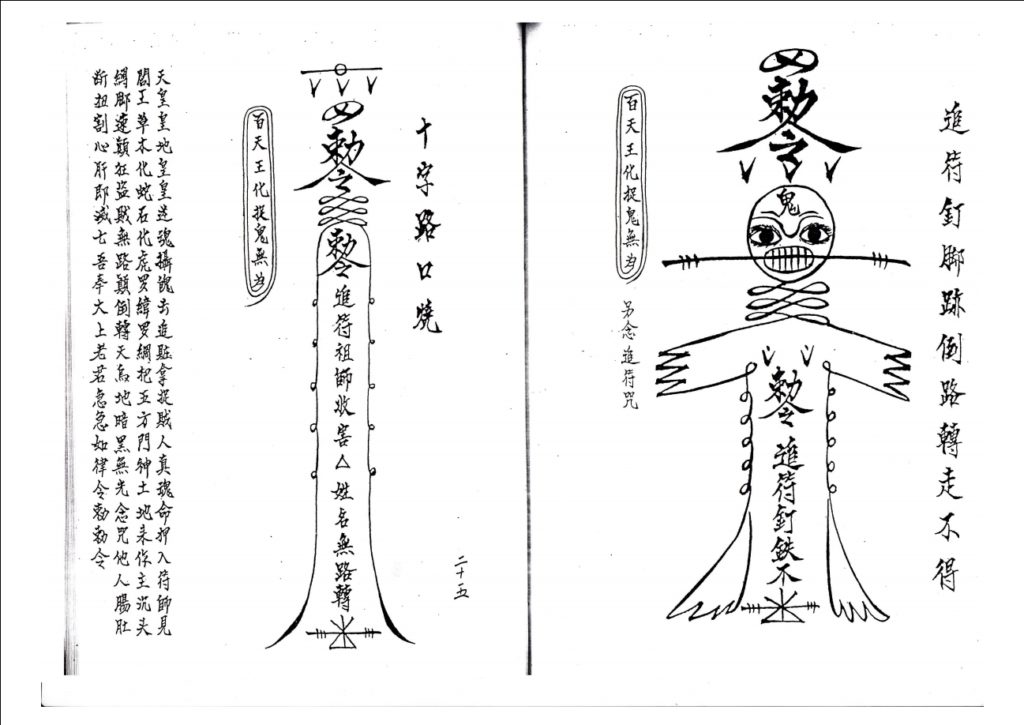 追符釘脚跡倒路轉走不得
勅令
鬼
勅令
追符釘鉄不
百天王化捉鬼無為
另念追符咒
十字路口燒
勅令
勅令
追符祖師收害△姓名無路轉
二十五
百天王化捉鬼無為
天皇皇地皇皇送魂攝魄去追趕拿捉賊人真魂命押入符師見
閻王草木化蛇石化虎罗緯罗綱把五方門神土地来作主沉头
綁脚遠顛狂盜賊無路顛倒轉天烏地暗黑無光念咒他人腸肚
断扭割心肝即滅亡吾奉大上老君急急如律令勅勅令